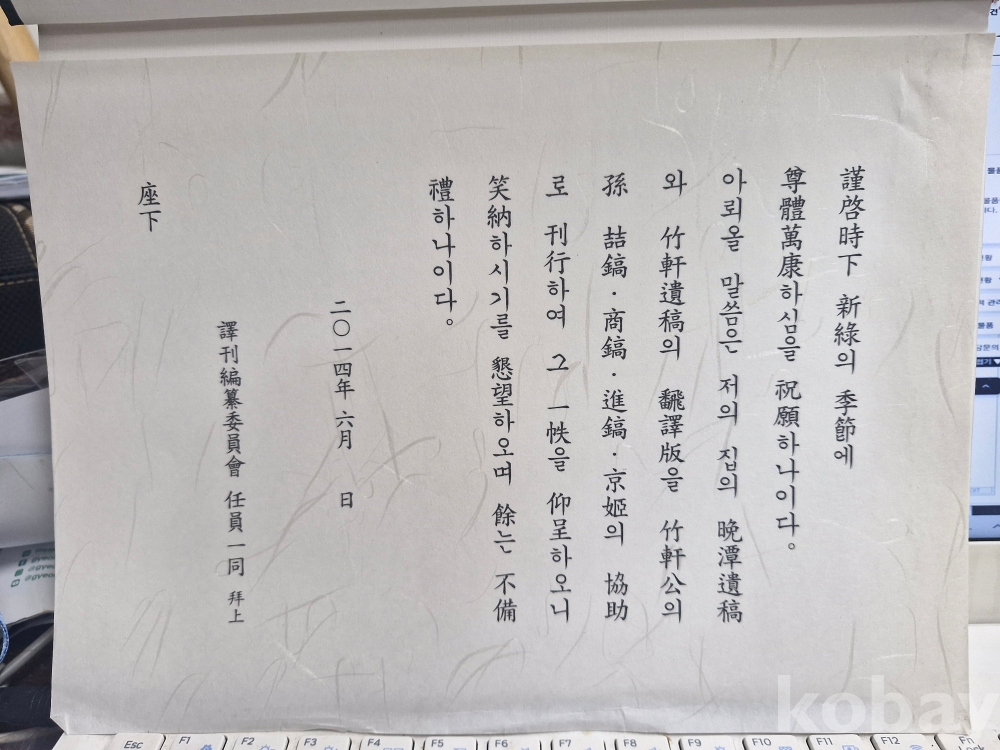 謹啓時下 新綠의 季節에
尊體萬康하심을 祝願하나이다。
아뢰올 말씀은 저의 집의 晩潭遺稿
와 竹軒遺稿의 飜譯版을 竹軒公의
孫 喆鎬·商鎬·進鎬·京姬의 協助
로 刊行하여 그 一帙을 仰呈하오니
笑納하시기를 懇望하오며 餘는 不備
禮하나이다。
二〇一四年 六月 日
譯刊編纂委員會 任員一同 拜上
座下
kobay
Esc F1 F2 F3 F4 F5 F6 F7 F8 F9 F10 F11 F12 Fn